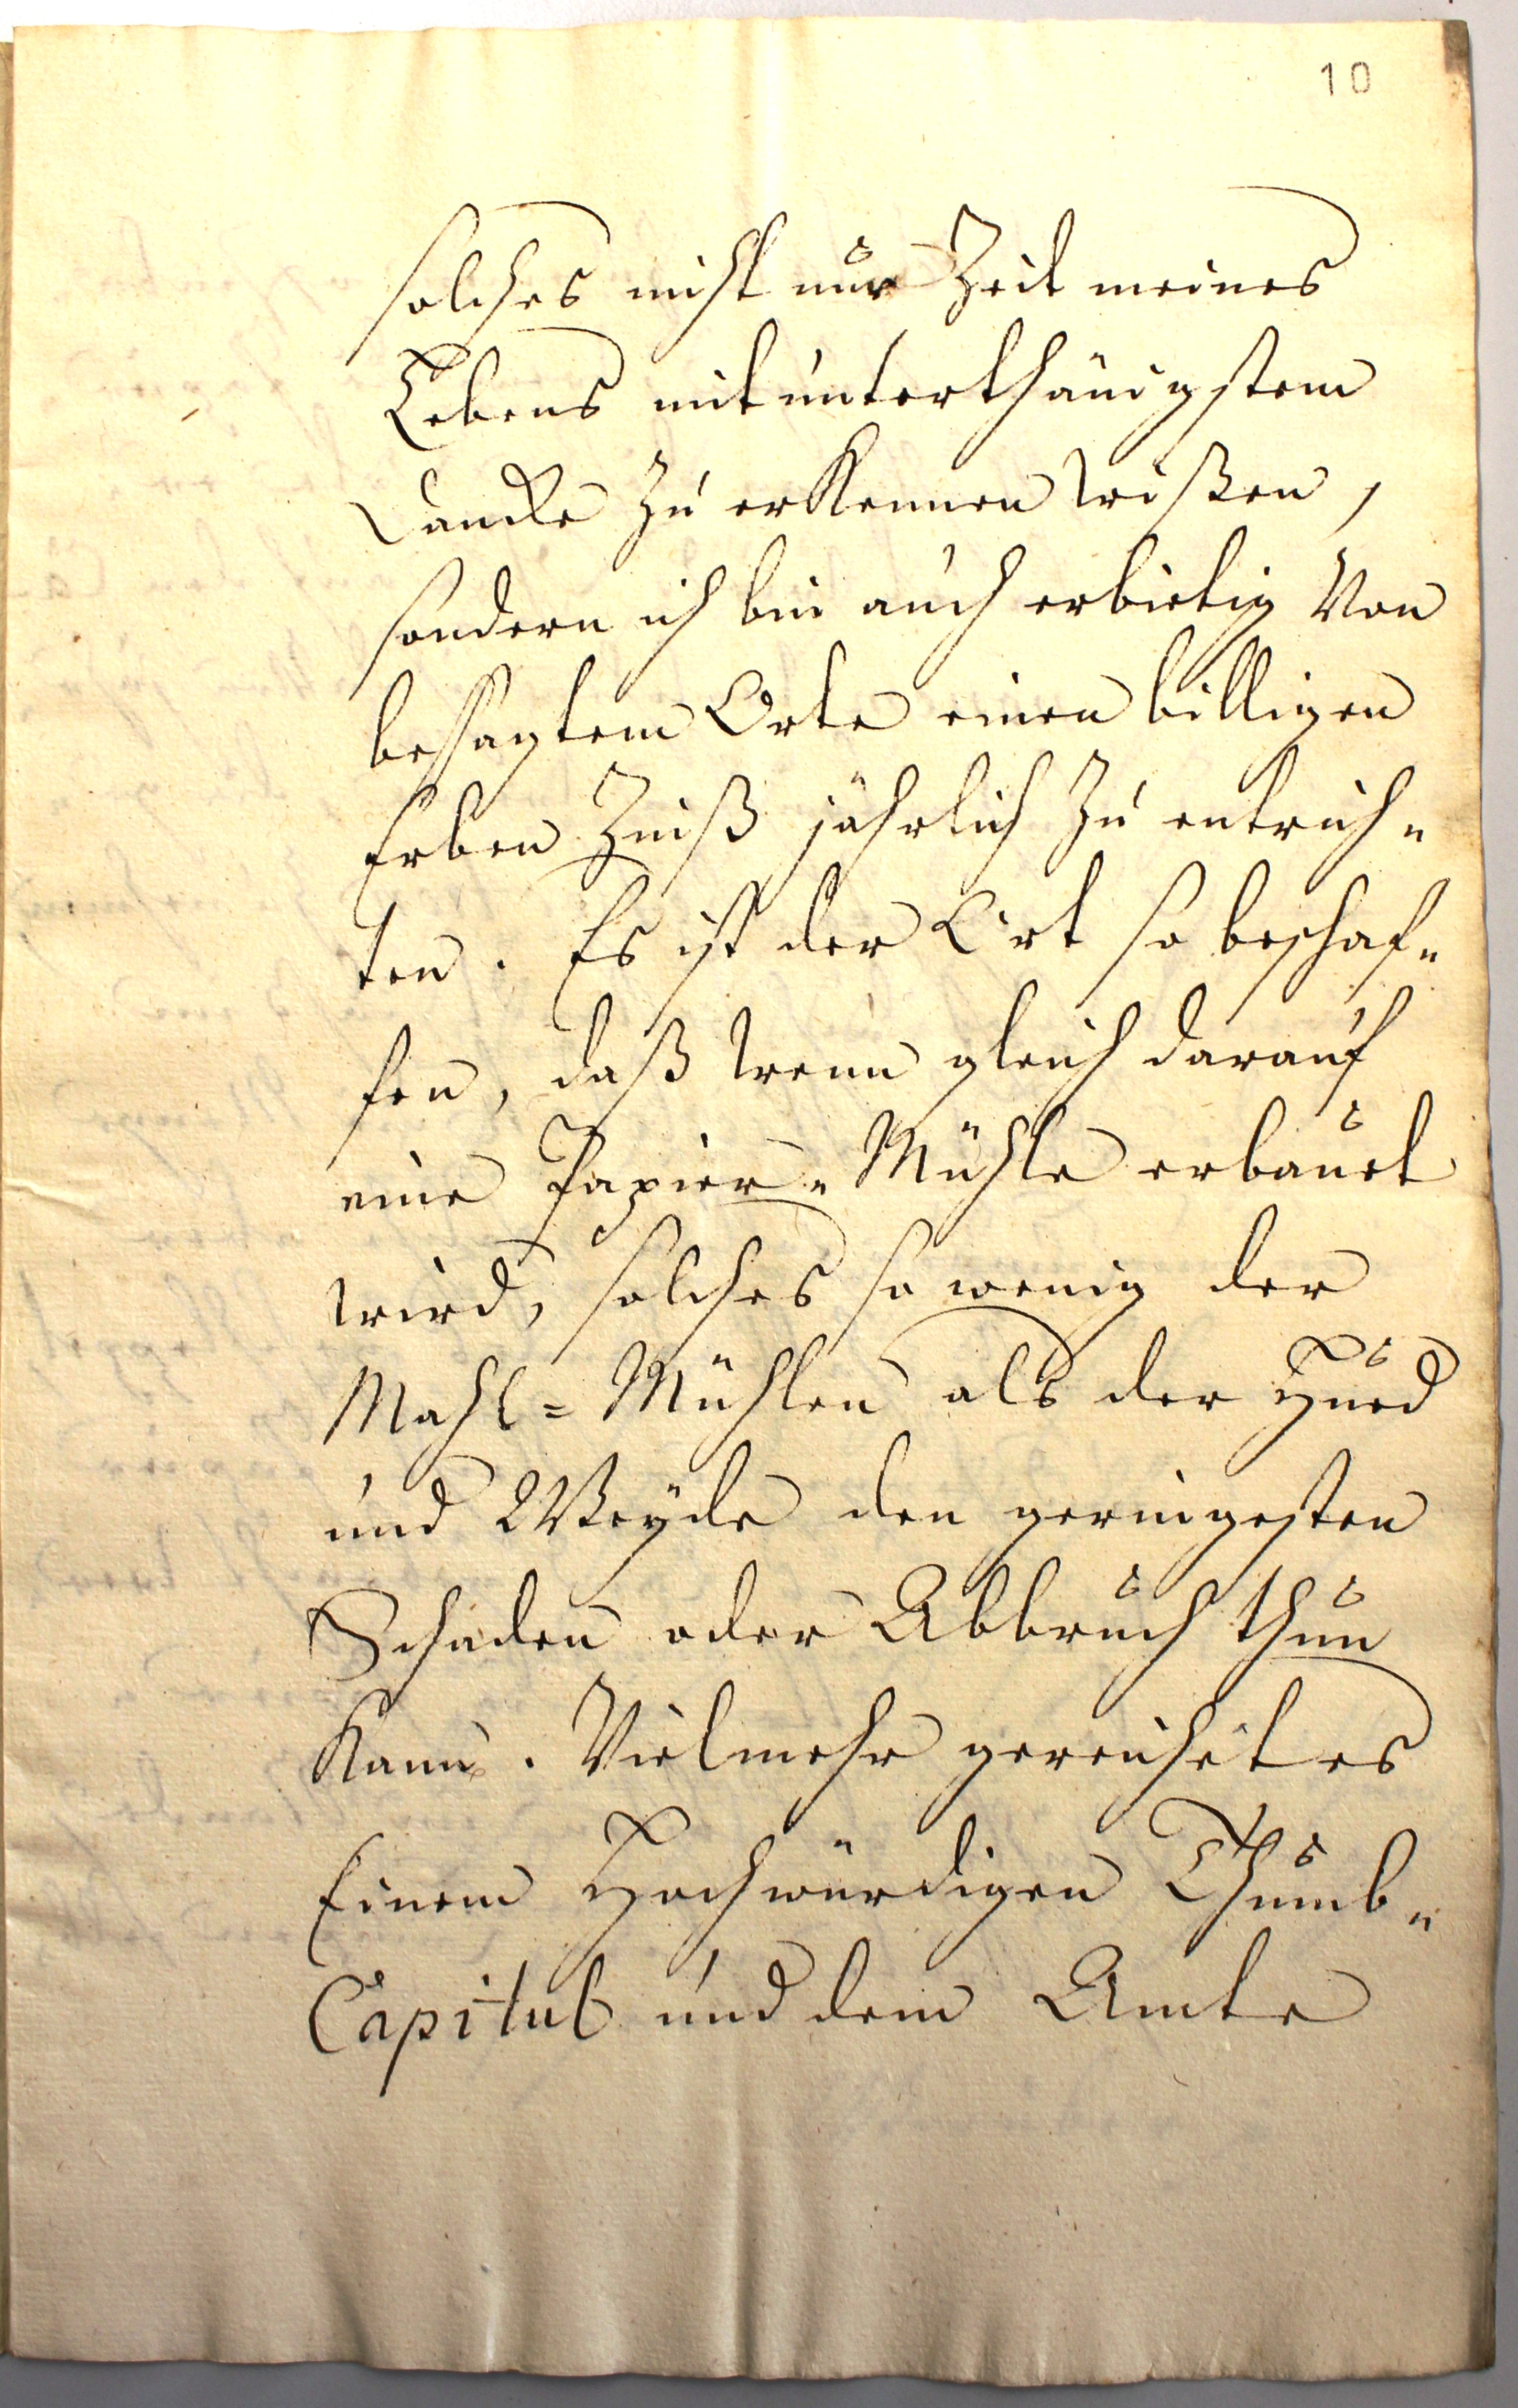 10
solches nicht nur Zeit meines
Lebens mit unterthänigstem
Dancke zu erkennen wißen,
sondern ich bin auch erbietig von
besagtem Orte einen billigen
Erben Zinß jährlich zu entrich„
ten. Es ist der Ort so beschaf„
fen, daß wenn gleich darauf
eine Papier„Mühle erbauet
wird, solches so wenig der
Mahl=Mühlen als der Hued
und Weyde den geringesten
Schaden oder Abbruch thun
kann. Vielmehr gereichet es
Einem Hochwürdigen Thumb„
Capitul und dem Amte